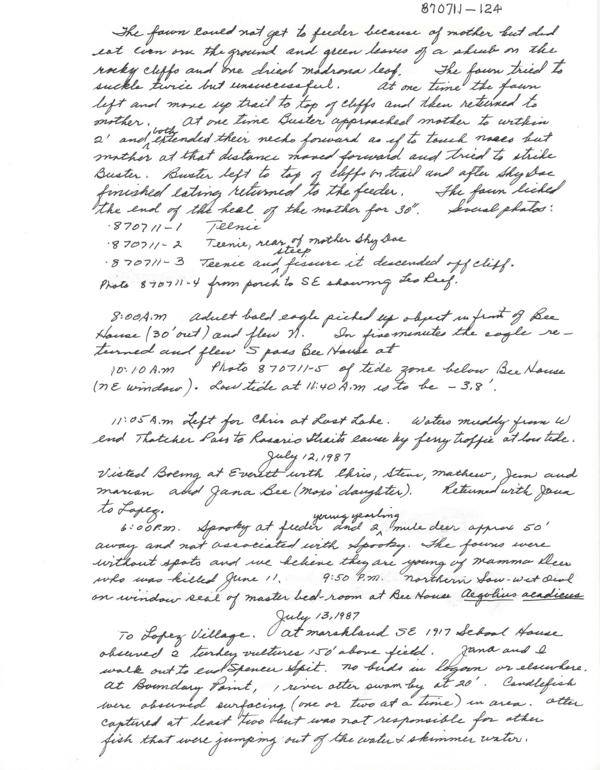 870711-124
The fawn could not get to feeder because of mother but did
eat corn on the ground and green leaves of a shrub on the
rocky cliffs and one dried madrona leaf. The fawn tried to
suckle twice but unsuccessful. At one time the fawn
left and move up trail to top of cliffs and then returned to
mother. At one time Buster approached mother to within
2' and both extended their necks forward as if to touch noses but
mother at that distance moved forward and tried to strike
Buster. Buster left to top of cliffs on trail and after Shy Doe
finished eating returned to the feeder. The fawn licked
the end of the heal of the mother for 30". Several photos:
·870711-1 Teenie
·870711-2 Teenie, rear of mother Shy Doe
·870711-3 Teenie and steep fissure it descended off cliff.
Photo 870711-4 from porch to SE showing Leo Reef.
8:00 A.M Adult bald eagle picked up object in front of Bee
House (30' out) and flew N. In five minutes the eagle re-
turned and flew S pass Bee House at
10:10 A.M Photo 870711-5 of tide zone below Bee House
(NE window). Low tide at 11:40 A.M is to be -3.8'.
11:05 A.M Left for Chris at Lost Lake. Waters muddy from W
end Thatcher Pass to Rosario Straits cause by ferry traffic at low tide.
July 12, 1987
Visted Boeing at Everett with Chris, Steve, Mathew, Jim and
Marian and Jana Bee (Mons' daughter). Returned with Jana
to Lopez.
6:00 P.M. Spooky at feeder and 2 young yearling mule deer approx 50'
away and not associated with Spooky. The fawns were
without spots and we believe they are young of Mamma Deer
who was killed June 11. 9:50 P.M. Northern Saw-wet Owl
on window seal of master bed-room at Bee House Aegolius acadicus
July 13, 1987
To Lopez Village. At marshland SE 1917 School House
observed 2 turkey vultures 150' above field. Jana and I
walk out to end Spencer Spit. No birds in lagoon or elsewhere.
At Boundary Point, 1 river otter swam by at 20'. Candlefish
were observed surfacing (one or two at a time) in area. Otter
captured at least two but was not responsible for other
fish that were jumping out of the water & skimmer water.